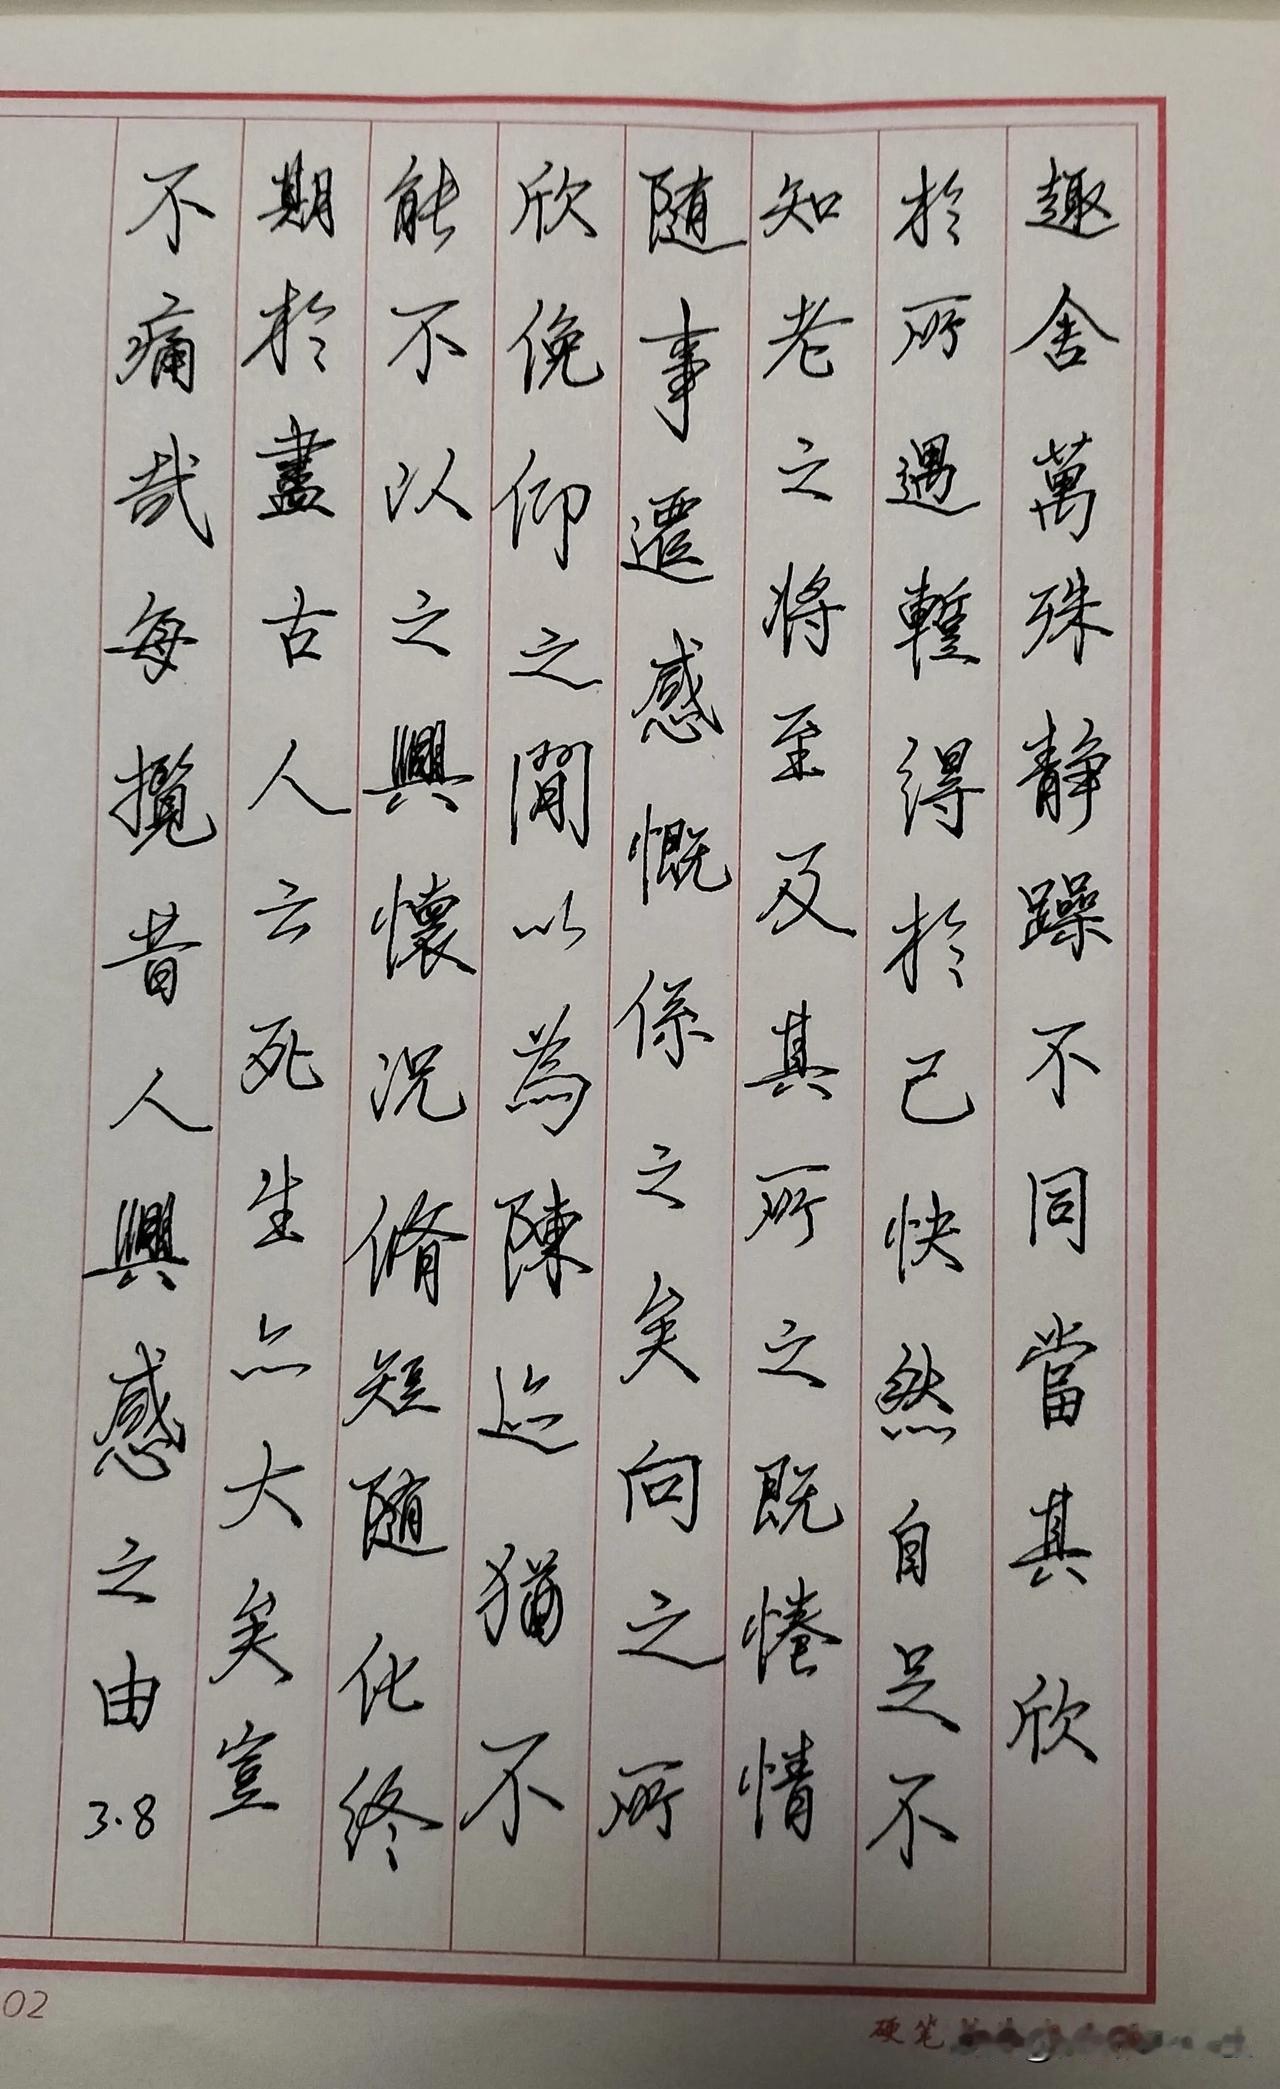 趣舍萬殊静躁不同當其欣
於所遇蹔得於己快然自足不
知老之将至及其所之既惓情
随事遷感慨係之矣向之所
欣俛仰之閒以為陳迹猶不
能不以之興懷况脩短随化終
期於盡古人云死生亦大矣豈
不痛哉每攬昔人興感之由
3.8
02
硬笔